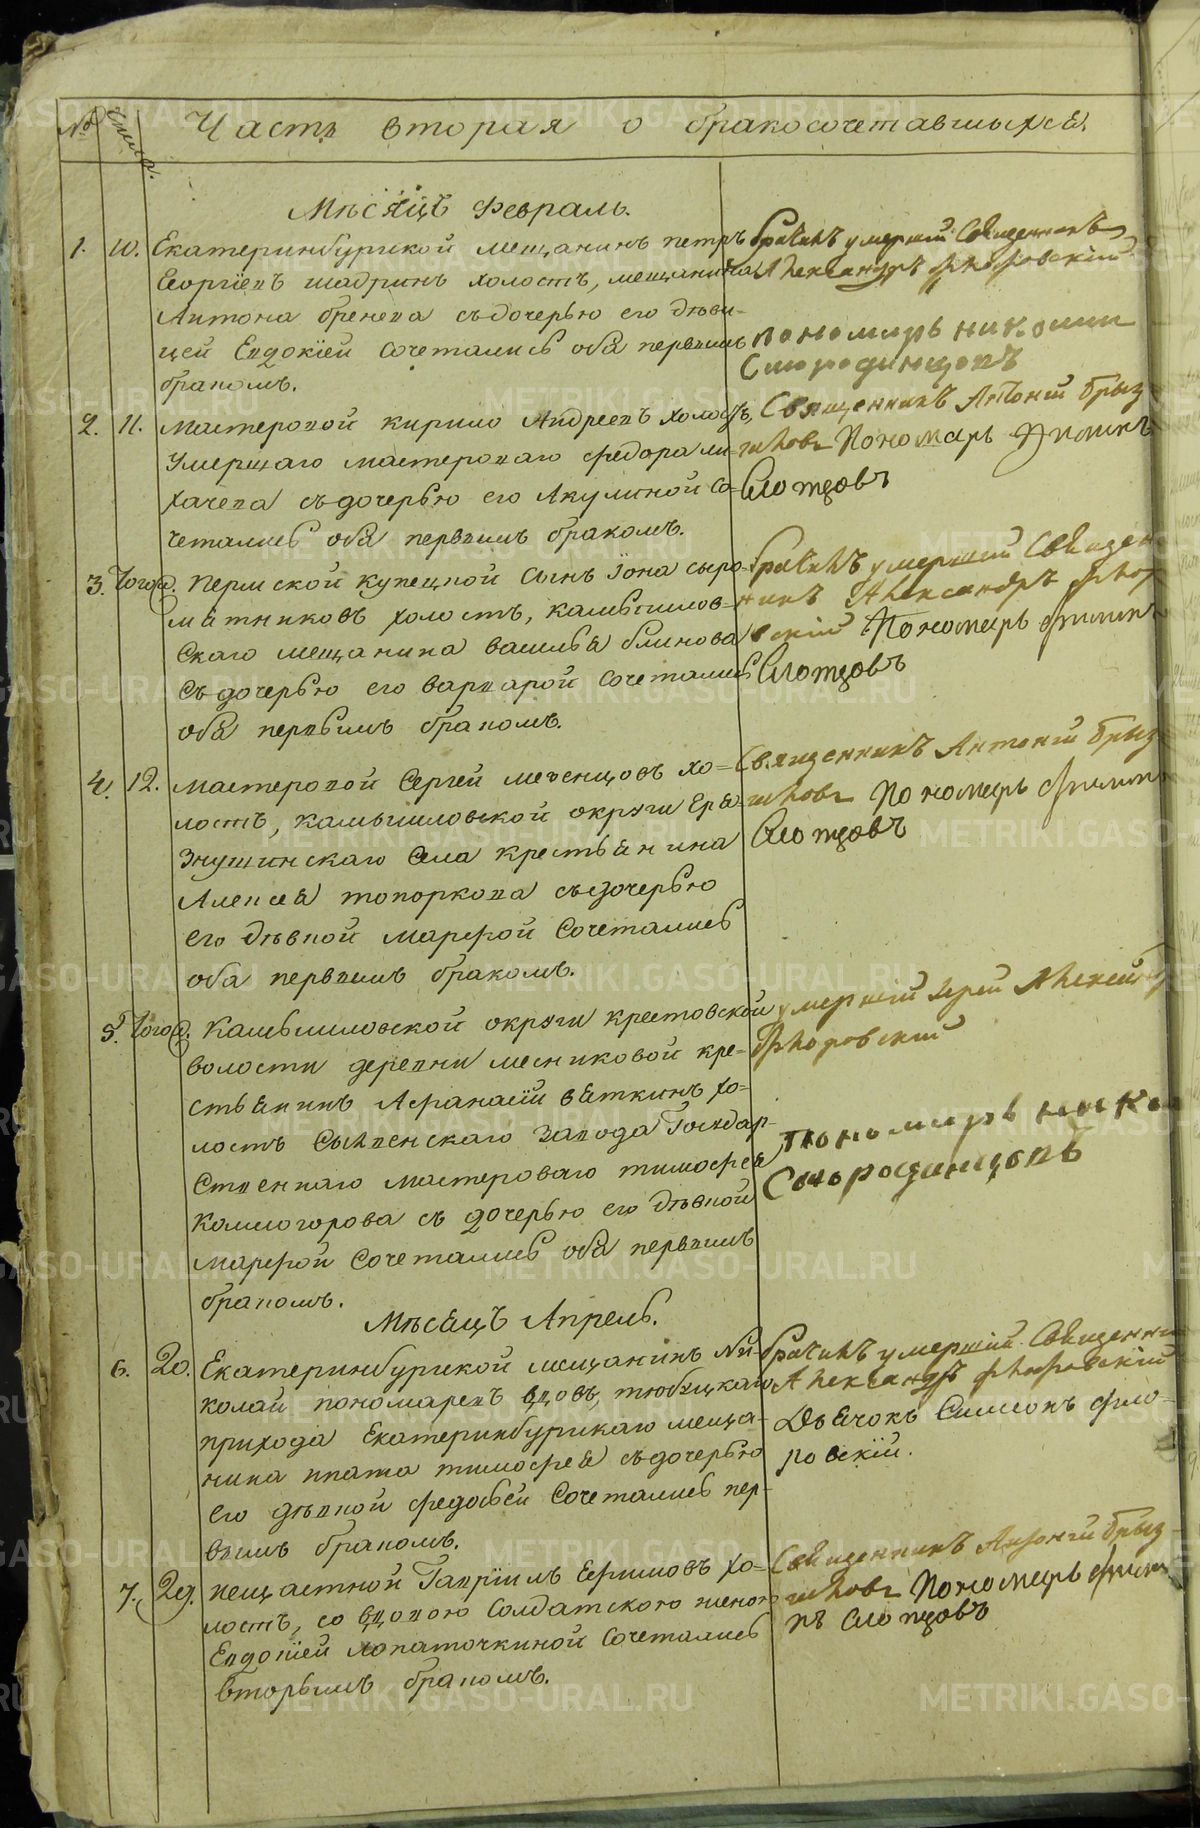 №
числа.
Часть вторая о бракосочетавшыхся.
Мѣсяцъ Февраль.
1. 10. Екатеринбургской мещанинъ петръ
Георгіевъ шадринъ холостъ, мещанина
Антона бренева съ дочерью его дѣви-
цей Евдокіей сочетались оба первымъ
бракомъ.
бракинъ умершій Священникъ
Александръ Флоровскій
пономарь
Смородинцовъ
2. 11. Мастеровой кирило Андреевъ холостъ,
умершаго мастероваго федора ли-
хачева съ дочерью его Акулиной со-
четались оба первымъ бракомъ.
Священникъ Антоній Брыз-
галовъ Пономарь Филипъ
Слотцовъ
3. Того. Пермской купецкой сынъ Іона сыро-
мятниковъ холостъ, камышлов-
скаго мещанина василья блинова
съ дочерью его варварой сочетались
оба первымъ бракомъ.
бракинъ умершій Священ-
никъ Александръ Флоро-
вскій Пономарь Филипъ
Слотцовъ
4. 12. Мастеровой Сергей меченцовъ хо-
лостъ, камышловской округи Ера-
знушинскаго села крестьянина
Алексея топоркова съ дочерью
его дѣвкой Марфой сочетались
оба первымъ бракомъ.
Священникъ Антоній Брыз
галовъ Пономарь Филип
Слотцовъ
5. Того. Камышловской округи крестовской
волости деревни месниковой кре-
стьянинъ Афанасій вяткинъ хо-
лостъ завода Государ-
ственнаго мастероваго тимофея
Коллмогорова съ дочерью его дѣвкой
Марфой сочетались оба первымъ
бракомъ.
умершій Іерей Алексей
Флоровскій
пономарь
Смородинцовъ
Мѣсяцъ Апрель.
6. 20. Екатеринбургской мещанинъ Ни-
колай пономаревъ вдовъ, тюбуцкаго
прихода Екатеринбургскаго меща-
нина ипата тимофея съ дочерью
его дѣвкой федосьей сочетались пер-
вымъ бракомъ.
бракинъ умершій Священни
Александръ Флоровскій
Дьячокъ Симеонъ фло-
ровскій.
7. 29. нещастной Гавріилъ Ефимовъ хо-
лостъ, со вдовою солдатскою женою
Евдокіей лопаточкиной сочетались
вторымъ бракомъ.
Священникъ Антоній Брыз-
галовъ Пономарь Фили
пъ Слотцовъ